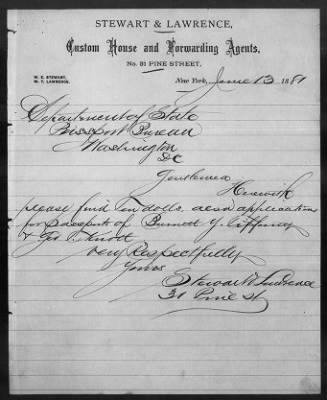 STEWART & LAWRENCE,
Custom House and Forwarding Agents,
No. 31 PINE STREET,
W. E. STEWART.
W. T. LAWRENCE.
New York, June 13 1881
Department of State
Passport Bureau
Washington
DC
Gentlemen
Herewith
please find Ten dolls. and application
for passports of Burnett Y. Tiffany
& Geo
Very Respectfully
Yours
Stewart & Lawrence
31 Pine St